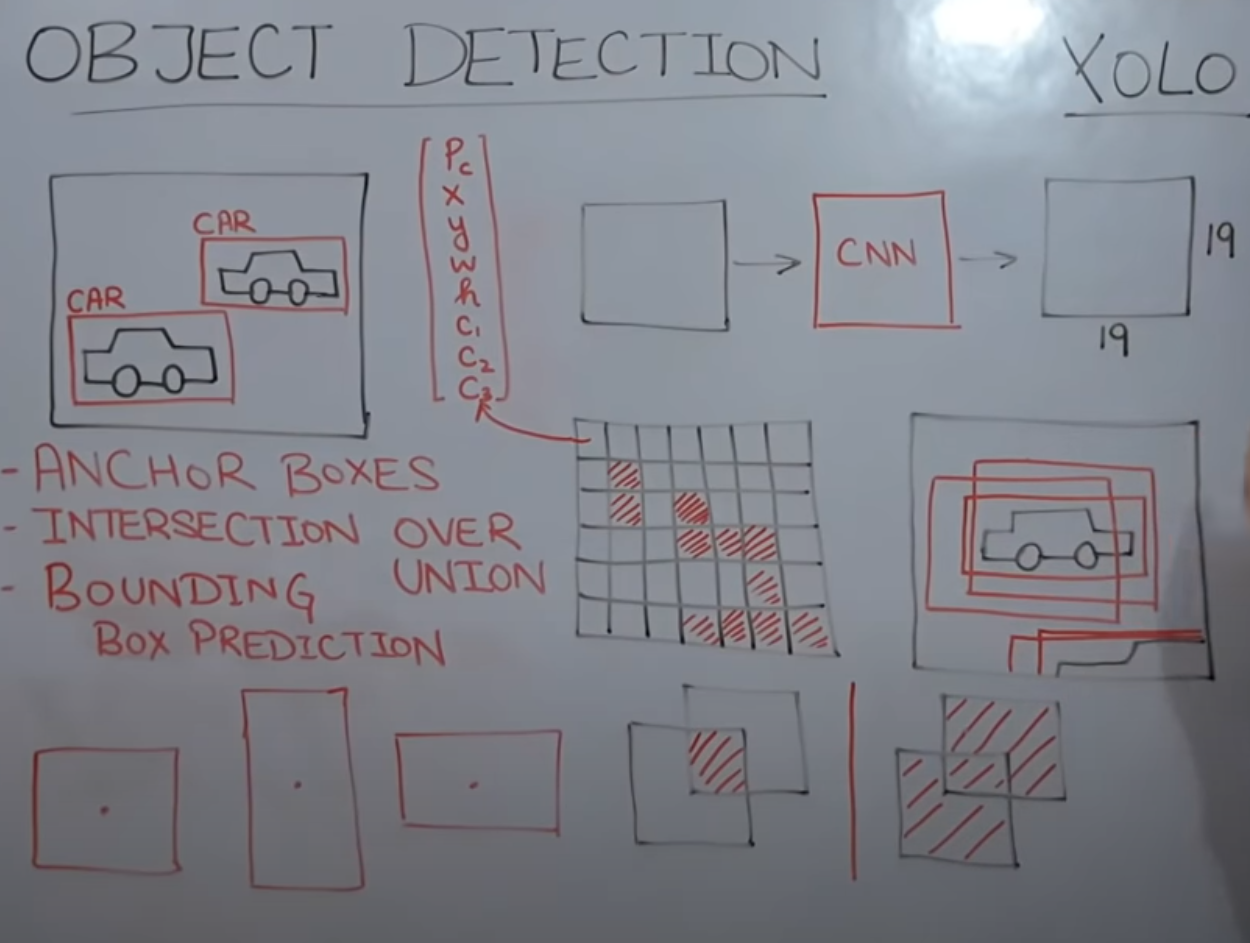 OBJECT DETECTION
YOLO
CAR
CAR
Pc
x
y
w
h
C1
C2
C3
CNN
19
19
- ANCHOR BOXES
- INTERSECTION OVER
UNION
- BOUNDING
BOX PREDICTION